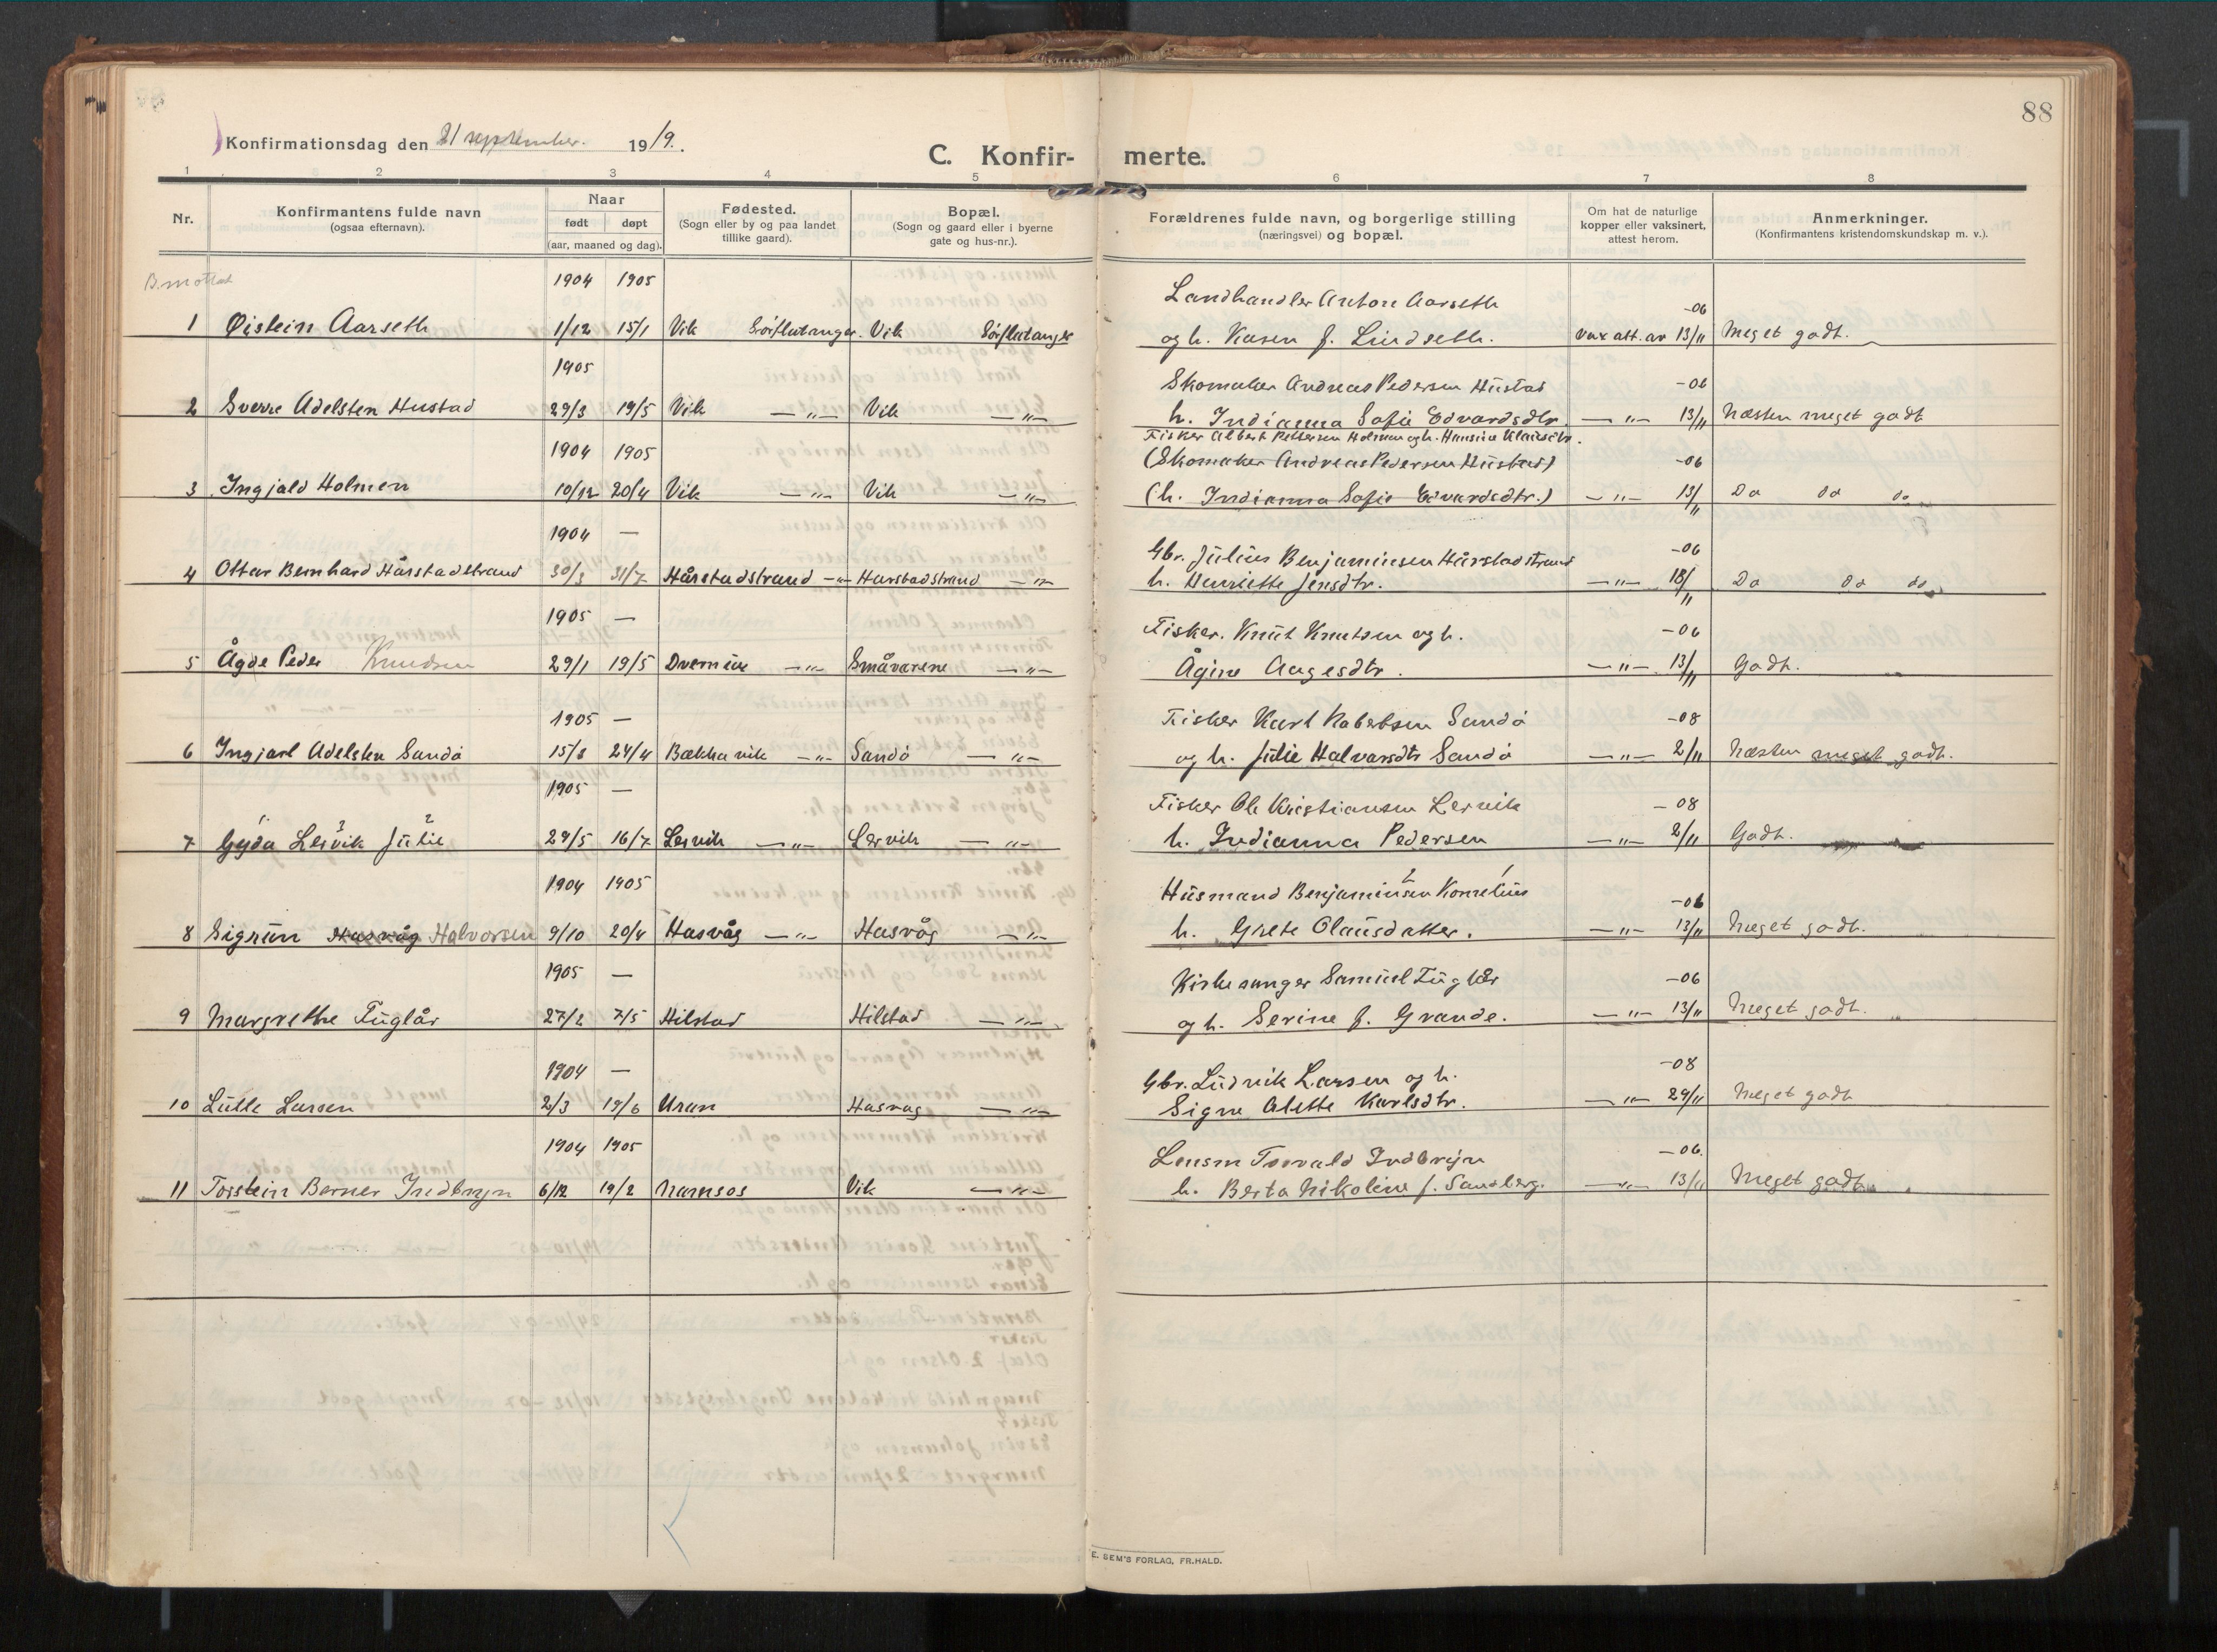 88
Konfirmationsdag den 21 september. 1919.
C. Konfir- merte.
1 2 3 4 5 6 7 8
Nr.
Konfirmantens fulde navn
(ogsaa efternavn).
Naar
født døpt
(aar, maaned og dag).
Fødested.
(Sogn eller by og paa landet
tillike gaard).
Bopæl.
(Sogn og gaard eller i byerne
gate og hus-nr.).
Forældrenes fulde navn, og borgerlige stilling
(næringsvei) og bopæl.
Om hat de naturlige
kopper eller vaksinert,
attest herom.
Anmerkninger.
(Konfirmantens kristendomskundskap m. v.).
1904 1905 Landhandler Anton Aarseth -06
1 Øistein Aarseth 1/12 15/1 Vik Vik og h. Kasen f. Lindseth. Vax att. av 13/11 Meget godt.
1905 Skomaker Andreas Pedersen Hustad -06
2 Sverre Adelsten Hustad 29/3 19/5 Vik —"— Vik —"— h. Indianna Sofie Edvardsdtr. —"— 13/11 Næsten meget godt
Fisker Albert Pettersen Holmen og h. Hansine Klausdtr.
1904 1905 (Skomaker Andreas Pedersen Hustad) -06
3 Ingjald Holmen 10/12 20/4 Vik —"— Vik —"— (h. Indianna Sofie Edvardsdtr.) —"— 13/11 Do do do
1904 — Gbr. Julius Benjaminsen Hårstadstrand -06
4 Ottar Bernhard Hårstadstrand 30/3 31/7 Hårstadstrand —"— Harstadstrand —"— h. Henriette Jensdtr. —"— 18/11 Do do do
1905 — Fisker. Knut Knutsen og h. -06
5 Ågde Peder Knudsen 29/1 19/5 —"— Småværene —"— Ågine Aagesdtr. —"— 13/11 Godt.
1905 — Fisker Karl Robertsen Sandö -08
6 Ingjarl Adelsten Sandö 15/3 24/4 Bækkavik —"— Sandö —"— og h. Julie Halvarsdtr Sandö —"— 2/11 Næsten meget godt.
1905 — Fisker Ole Kristiansen Lervik -08
1 3 2
7 Gyda Lervik Julie 29/5 16/7 Lervik —"— Lervik —"— h. Indianna Pedersen —"— 2/11 Godt.
2 1
1904 1905 Husmand Benjaminsen Kornelius -06
8 Sigrun Hasvåg Halvorsen 9/10 20/4 Hasvåg —"— Hasvåg —"— h. Grete Olausdatter. —"— 13/11 Meget godt.
1905 — Kirkesanger Samuel Fuglår -06
9 Margrethe Fuglår 27/2 7/5 Hilstad Hilstad —"— og h. Serine f. Grande. —"— 13/11 Meget godt.
1904 — Gbr. Ludvik Larsen og h. -08
10 Lulle Larsen 2/3 19/6 Uran Hasvag —"— Signe Alette Karlsdtr. —"— 29/11 Meget godt
1904 1905 Lensm Torvald Indbryn -06.
11 Torstein Berner Indbryn 6/12 19/2 Namsos Vik —"— h. Berta Nikoline f. Sandberg. —"— 13/11 Meget godt.
E. SEM'S FORLAG, FR.HALD.